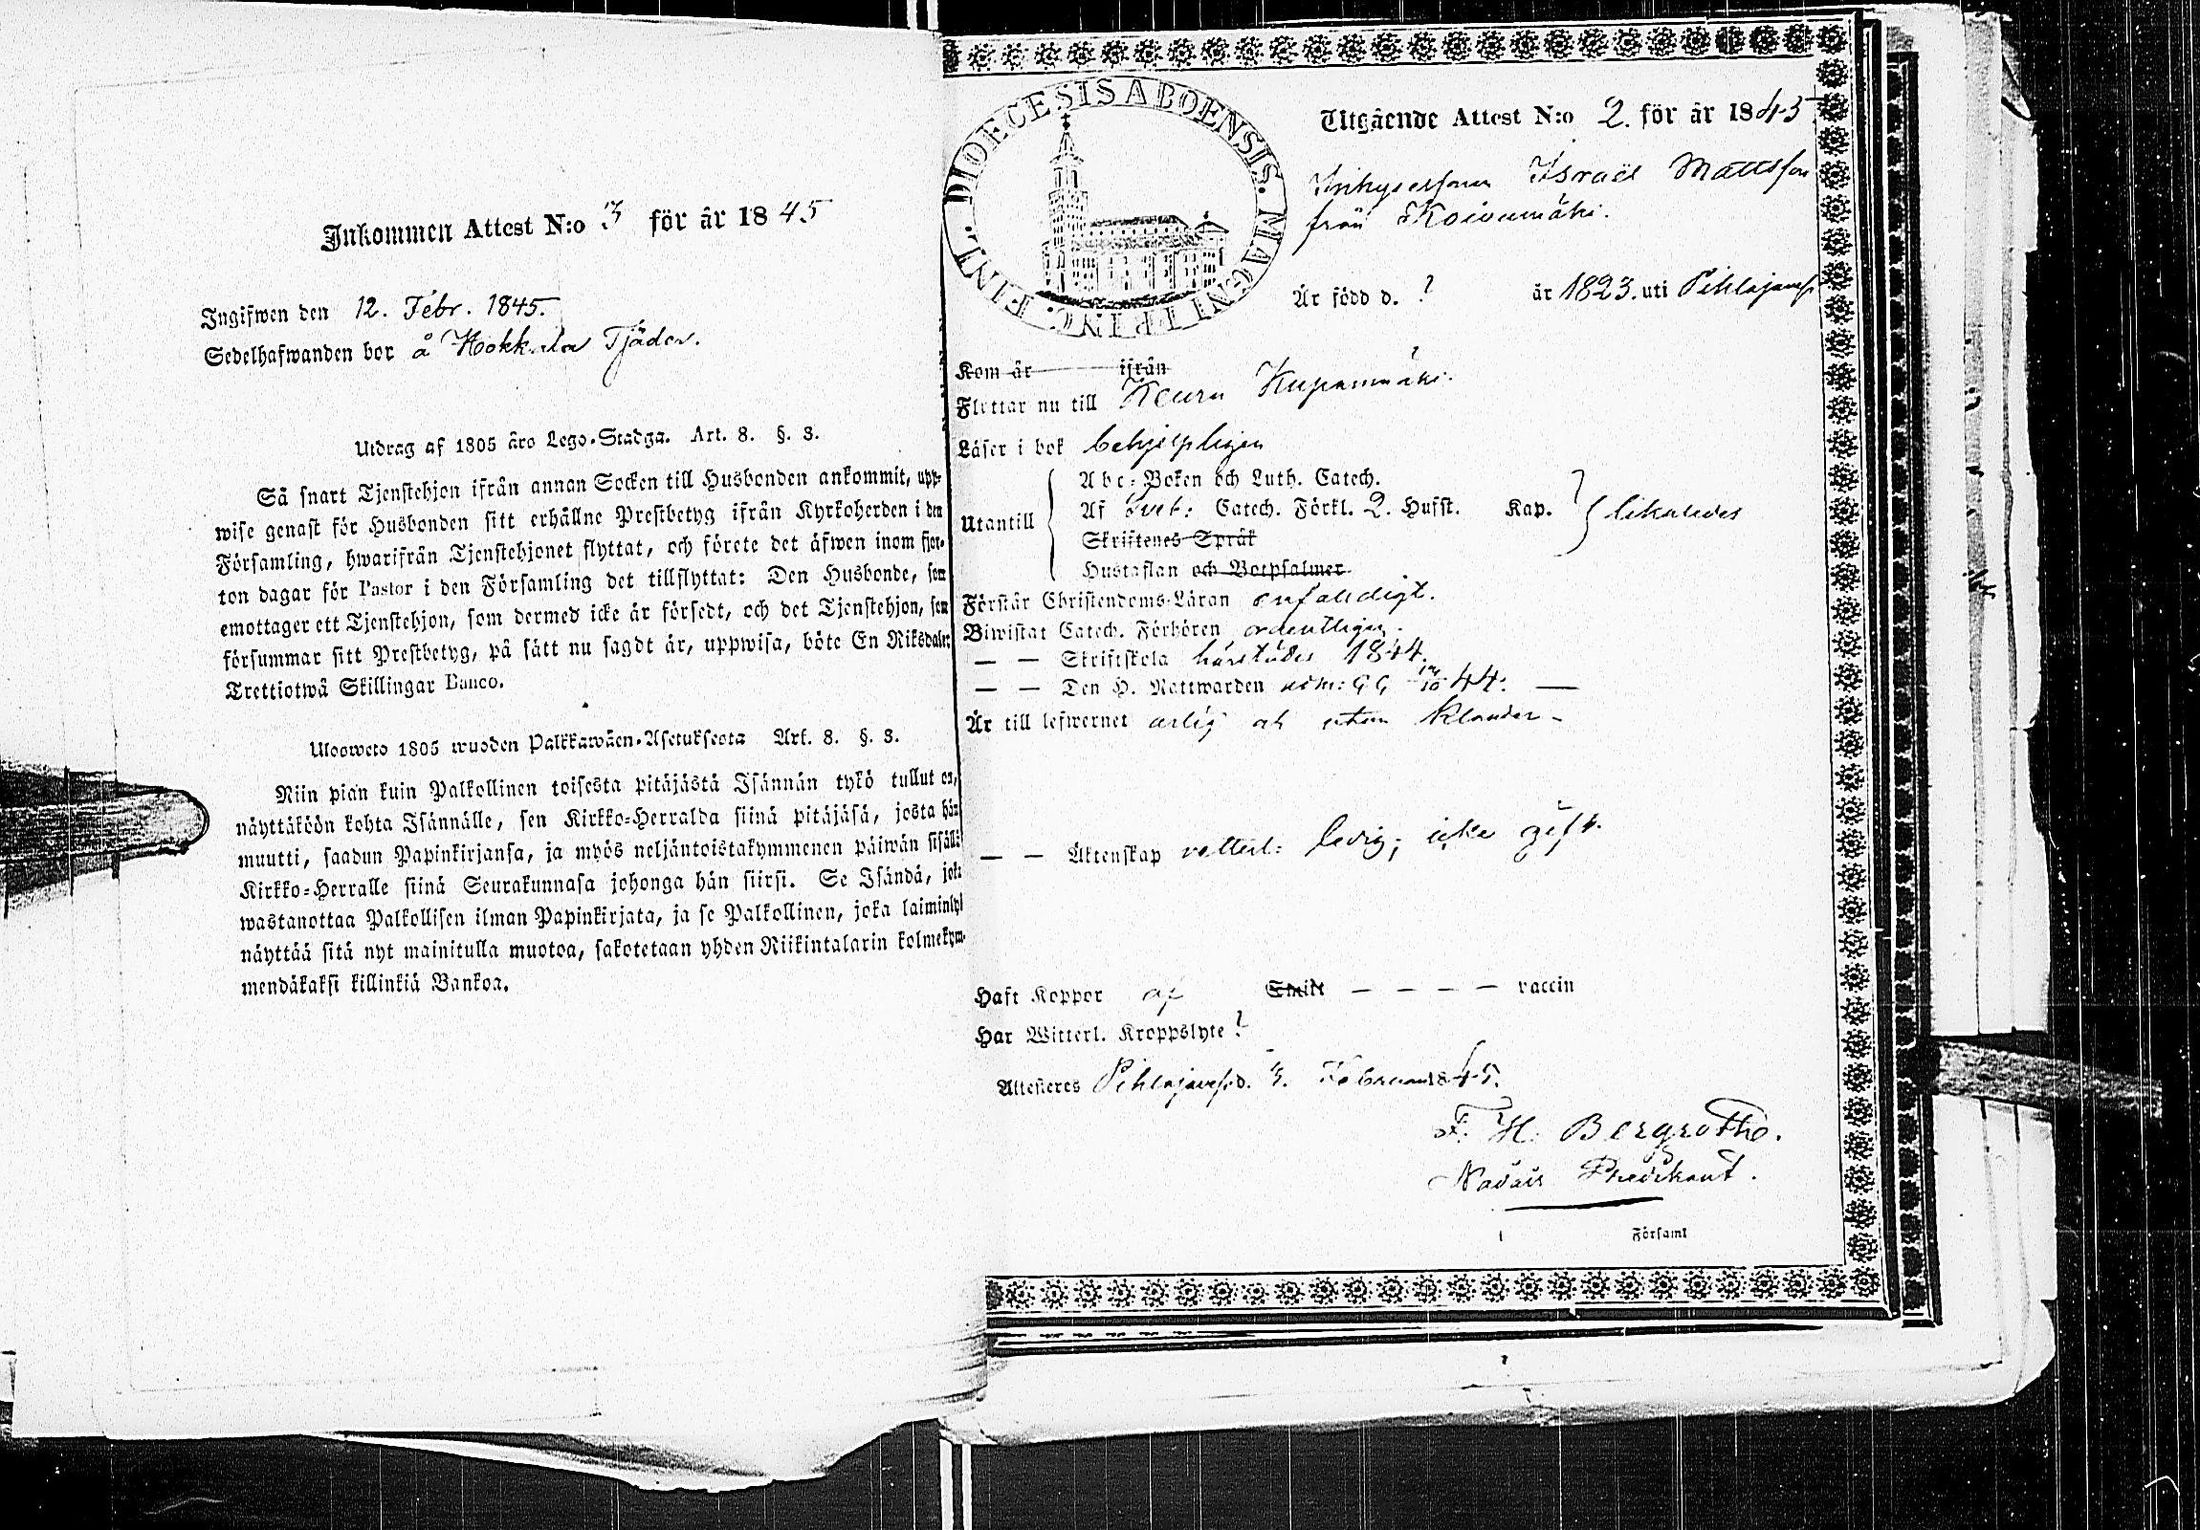 Inkommen Attest N:o 3 för år 1845
Ingifwen den 12. Febr. 1845.
Sedelhafwanden bor å Hokkala Tjäder.
Utdrag af 1805 års Lego-Stadga. Art. 8. §. 3.
Så snart Tjenstehjon ifrån annan Socken till Husbonden ankommit, upp-
wise genast för Husbonden sitt erhållne Prestbetyg ifrån Kyrkoherden i den
Församling, hwarifrån Tjenstehjonet flyttat, och förete det äfwen inom fjor-
ton dagar för Pastor i den Församling det tillflyttat: Den Husbonde, som
emottager ett Tjenstehjon, som dermed icke är försedt, och det Tjenstehjon, som
försummar sitt Prestbetyg, på sätt nu sagdt är, uppwisa, böte En Riksdaler
Trettiotwå Skillingar Banco.
Ulosweto 1805 wuoden Palkkawäen-Asetuksesta Art. 8. §. 3.
Niin pian kuin Palkollinen toisesta pitäjästä Isännän tykö tullut on,
näyttäköön kohta Isännälle, sen Kirkko-Herralda siinä pitäjäsä, josta hän
muutti, saadun Papinkirjansa, ja myös neljäntoistakymmenen päiwän sisällä
Kirkko-Herralle siinä Seurakunnasa johonga hän siirsi. Se Isändä, joka
wastanottaa Palkollisen ilman Papinkirjata, ja se Palkollinen, joka laiminlyö
näyttää sitä nyt mainitulla muotoa, sakotetaan yhden Riikintalarin kolmekym-
mendäkaksi killinkiä Bankoa.
DIOECESIS ABOENSIS. MAGNI PRINC. FINL.
Utgående Attest N:o 2. för år 1845
Inhysessonen Israël Mattsson
från Koivumäki.
Är född d. ? år 1823. uti Pihlajavesi
Kom år ifrån
Flyttar nu till Keuru
Läser i bok behjelpligen
Abc-Boken och Luth. Catech.
Utantill Af Sveb: Catech. Förkl. 2. Hufst. Kap. ? likaledes
Skriftenes Språk
Hustaflan och Botpsalmer
Förstår Christendoms-Läran enfaldigt.
Biwistat Catech. Förhören ordentligen.
— — Skriftskola härstädes 1844.
— — Den H. Nattwarden 44. —
Är till lefwernet ärlig och utan klander -
— — Äktenskap vetterl: ledig; icke gift.
Haft Koppor af Smitt — — — — vaccin
Har Witterl. Kroppslyte ?
Attesteres Pihlajavesi d. 3. Februari 1845.
F. H. Bergroth.
Predikant.
Församl